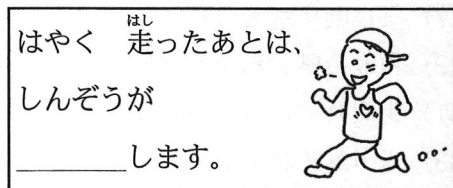 はやく　走ったあとは、
しんぞうが
＿＿＿＿＿します。